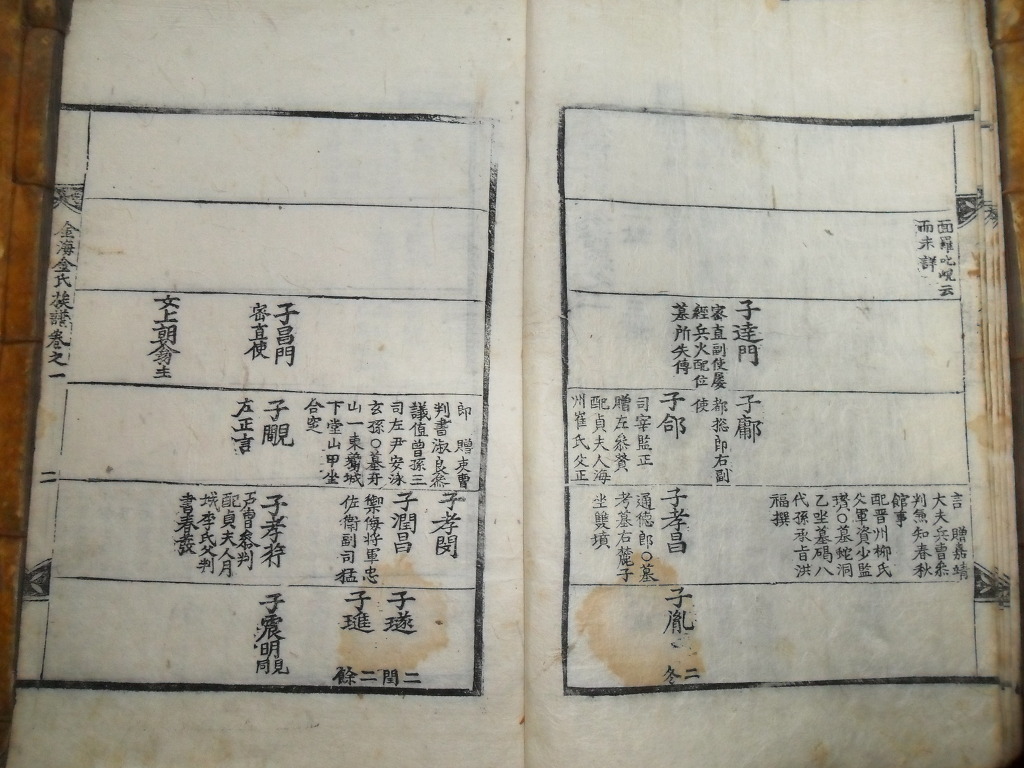 面羅叱峴云
而未詳
子達門
密直副使屡
經兵火配位
墓所失傳
子鄘
都摠郎右副
使
子郃
司宰監正
贈左叅賛
配貞夫人海
州崔氏父正
言 贈嘉靖
大夫兵曹叅
判兼知春秋
館事
配晋州柳氏
父軍資少監
墓蛇洞
乙坐墓碣八
代孫承旨洪
福撰
子孝昌
通德郎〇墓
考墓右麓子
坐雙墳
子胤
二
冬
子昌門
密直使
女上朝翁主
郎 贈吏曹
判書淑良叅
議值曾孫三
司左尹安泳
玄孫〇墓牙
山一東葛城
下堂山甲坐
合窆
子覵
左正言
子孝閔
子潤昌
禦侮將軍忠
佐衛副司猛
子孝符
吏曹叅判
配貞夫人月
城李氏父判
書春
子璲
二
閏
子琟
二
餘
子震明
覵
金海金氏族譜卷之一
二